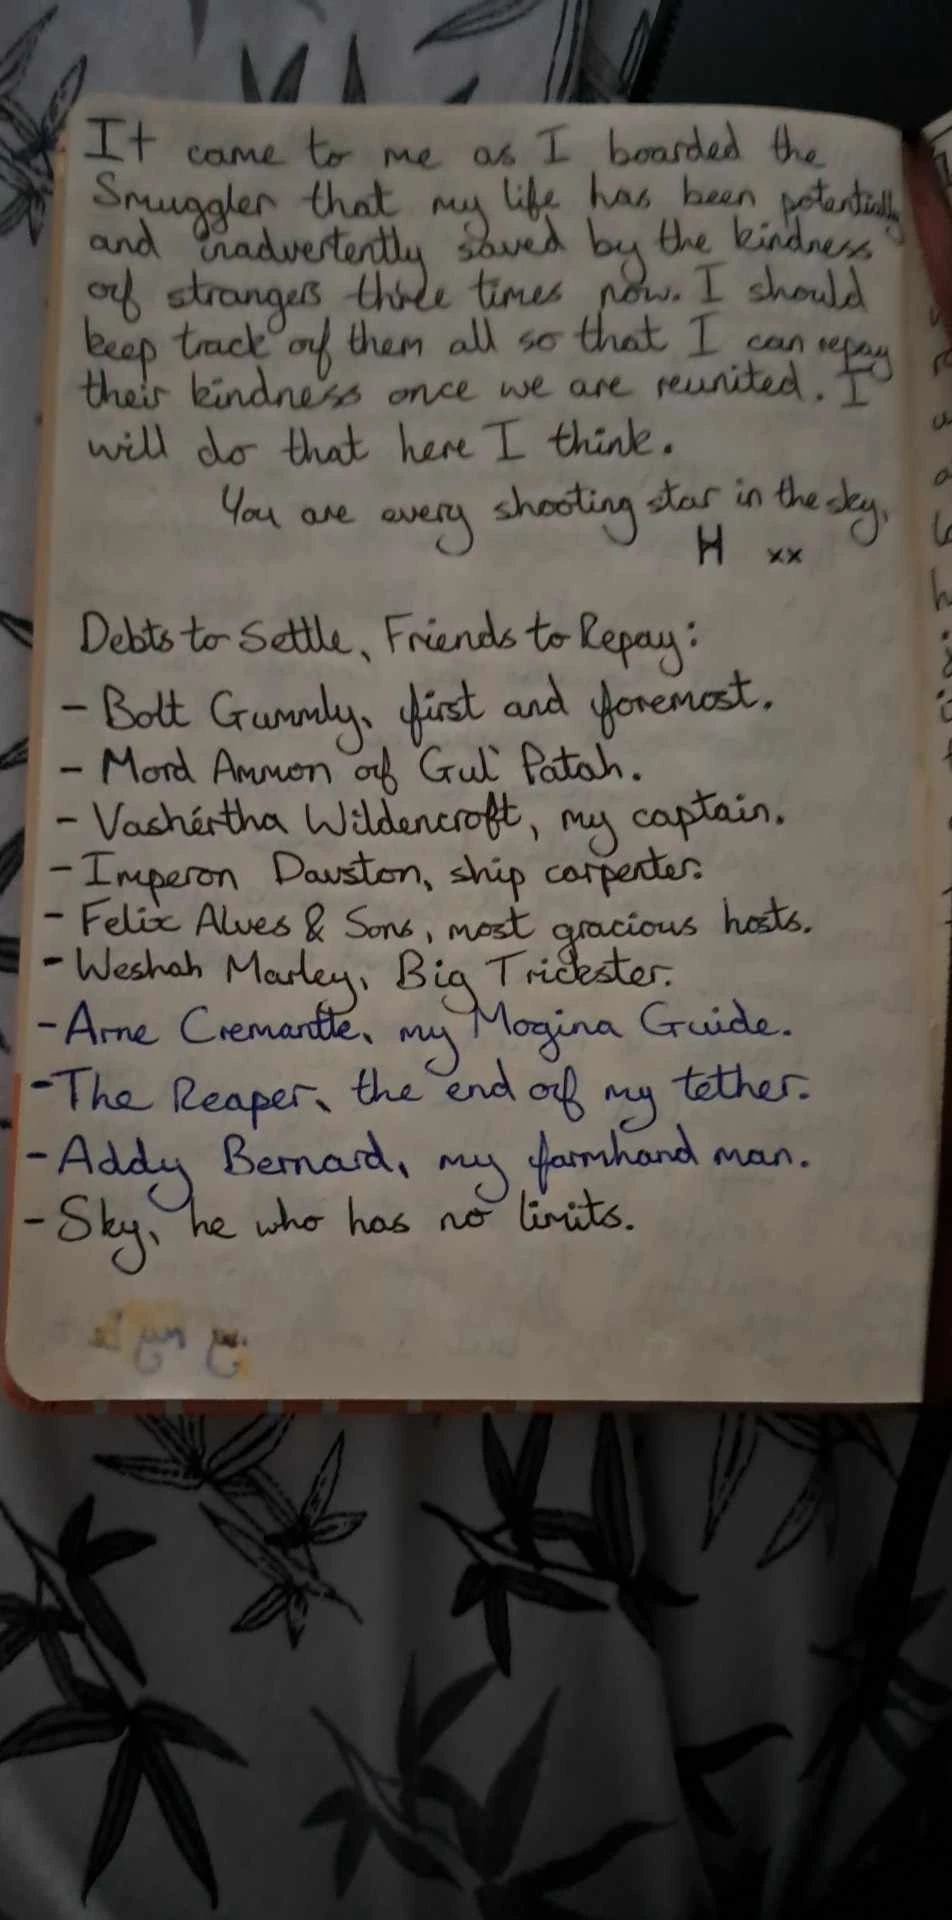 It came to me as I boarded the
Smuggler that my life has been potentially
and inadvertently saved by the kindness
of strangers three times now. I should
keep track of them all so that I can repay
their kindness once we are reunited. I
will do that here I think.
You are every shooting star in the sky,
H xx
Debts to Settle, Friends to Repay:
- Bolt Gummly, first and foremost.
- Mord Ammon of Gul' Patah.
- Vashértha Wildencroft, my captain.
- Imperon Dauston, ship carpenter.
- Felix Alves & Sons, most gracious hosts.
- Weshah Marley, Big Trickster.
- Arne Cremantle, my Mogina Guide.
- The Reaper, the end of my tether.
- Addy Bernard, my farmhand man.
- Sky, he who has no limits.